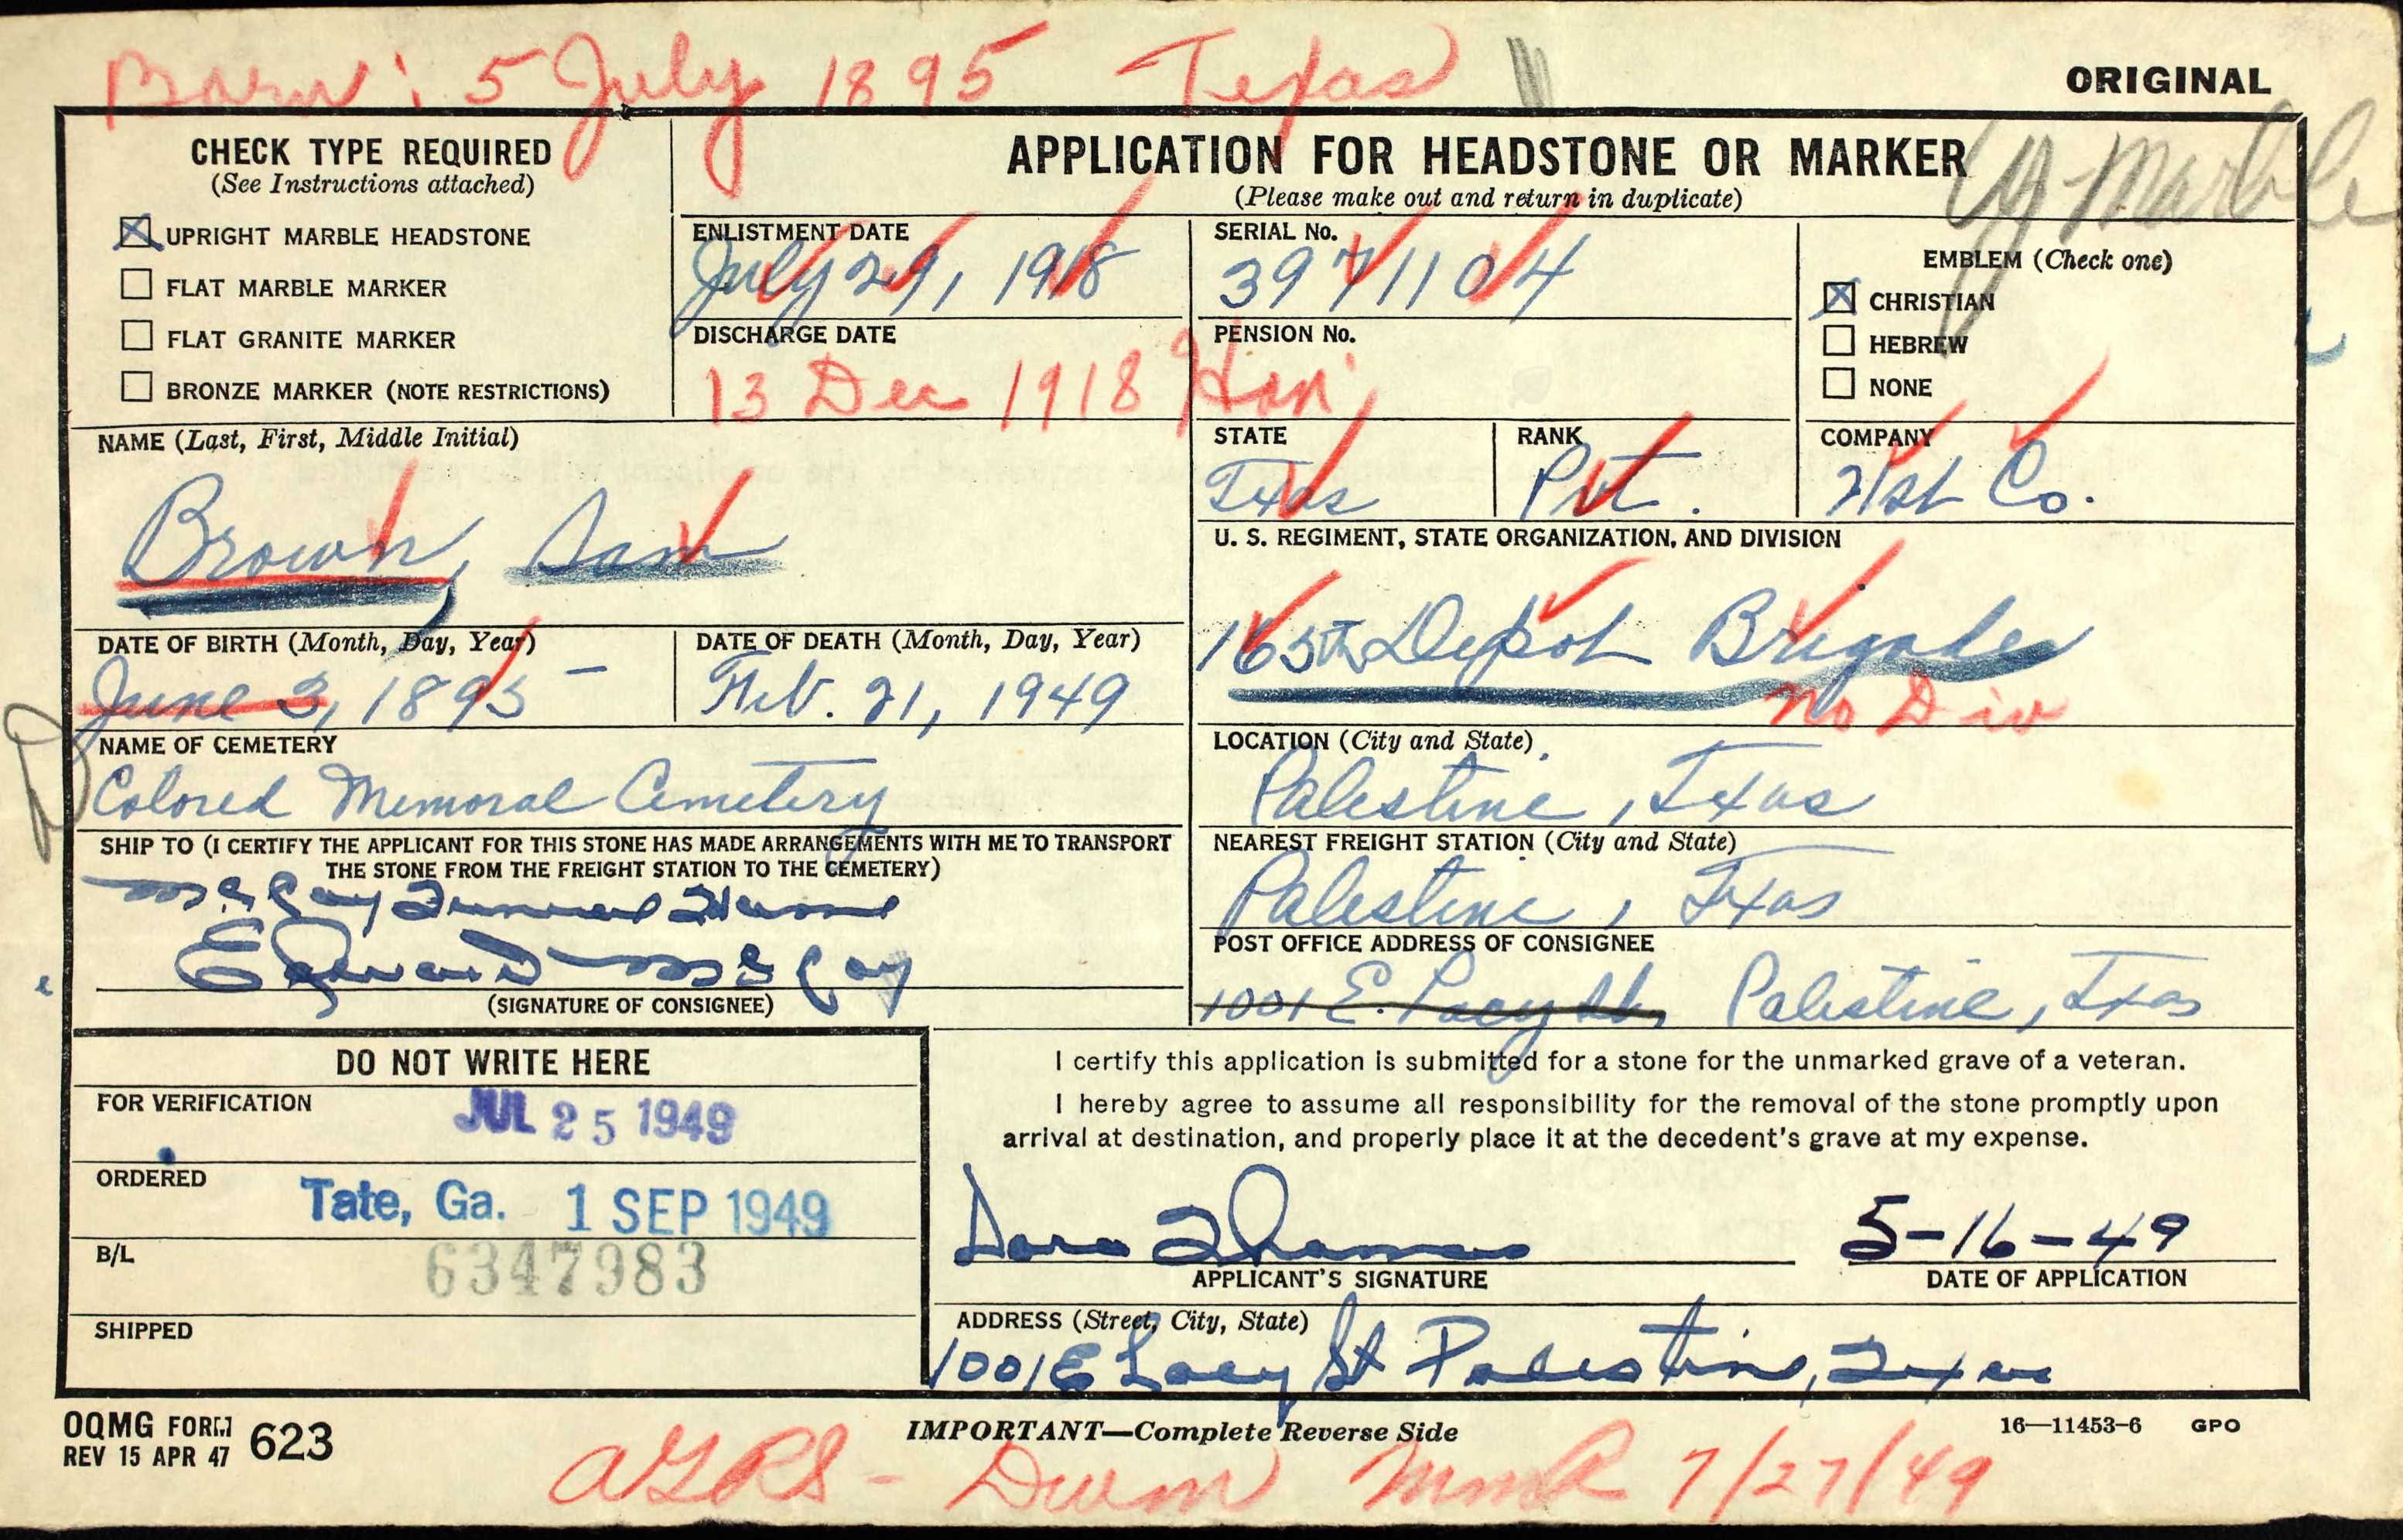 Born: 5 July 1895 Texas
ORIGINAL
CHECK TYPE REQUIRED
(See Instructions attached)
UPRIGHT MARBLE HEADSTONE
FLAT MARBLE MARKER
FLAT GRANITE MARKER
BRONZE MARKER (NOTE RESTRICTIONS)
APPLICATION FOR HEADSTONE OR MARKER
(Please make out and return in duplicate)
Marble
ENLISTMENT DATE
July 29, 1918
SERIAL No.
3971104
EMBLEM (Check one)
CHRISTIAN
HEBREW
NONE
DISCHARGE DATE
13 Dec 1918 Hon
PENSION No.
NAME (Last, First, Middle Initial)
Brown, Sam
STATE
Texas
RANK
Pvt.
COMPANY
21st Co.
U. S. REGIMENT, STATE ORGANIZATION, AND DIVISION
165th Depot Brigade
no Div
DATE OF BIRTH (Month, Day, Year)
June 3, 1895
DATE OF DEATH (Month, Day, Year)
Feb. 21, 1949
NAME OF CEMETERY
Colored Memoral Cemetery
LOCATION (City and State)
Palestine, Texas
SHIP TO (I CERTIFY THE APPLICANT FOR THIS STONE HAS MADE ARRANGEMENTS WITH ME TO TRANSPORT
THE STONE FROM THE FREIGHT STATION TO THE CEMETERY)
McCoy Funeral Home
Edward McCoy
(SIGNATURE OF CONSIGNEE)
NEAREST FREIGHT STATION (City and State)
Palestine, Texas
POST OFFICE ADDRESS OF CONSIGNEE
1001 E. Lacy St, Palestine, Texas
DO NOT WRITE HERE
FOR VERIFICATION
JUL 25 1949
ORDERED
Tate, Ga. 1 SEP 1949
B/L
6347983
SHIPPED
I certify this application is submitted for a stone for the unmarked grave of a veteran.
I hereby agree to assume all responsibility for the removal of the stone promptly upon
arrival at destination, and properly place it at the decedent's grave at my expense.
Dora Thomas
5-16-49
APPLICANT'S SIGNATURE
DATE OF APPLICATION
ADDRESS (Street, City, State)
1001 E Lacy St Palestine, Texas
OQMG FORM
REV 15 APR 47
623
IMPORTANT—Complete Reverse Side
16—11453-6 GPO
7/27/49